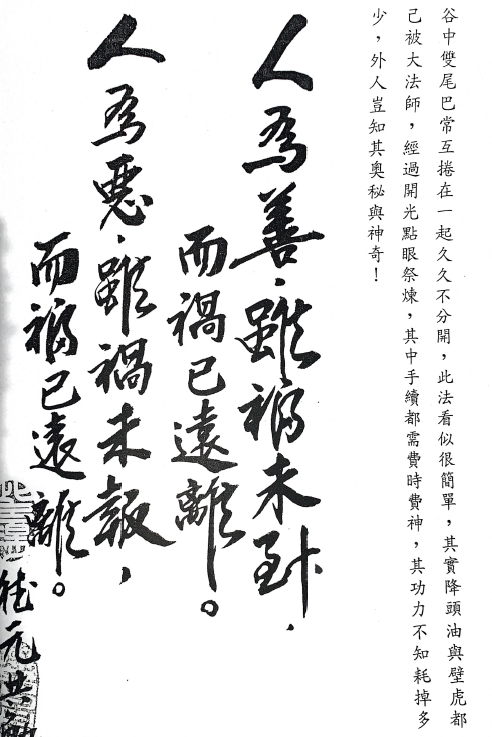 谷中雙尾巴常互捲在一起久久不分開，此法看似很簡單，其實降頭油與壁虎都
己被大法師，經過開光點眼祭煉，其中手續都需費時費神，其功力不知耗掉多
少，外人豈知其奧秘與神奇！
人為善，雖福未到，
而禍已遠離。
人為惡，雖禍未報，
而福已遠離。
德元共勉